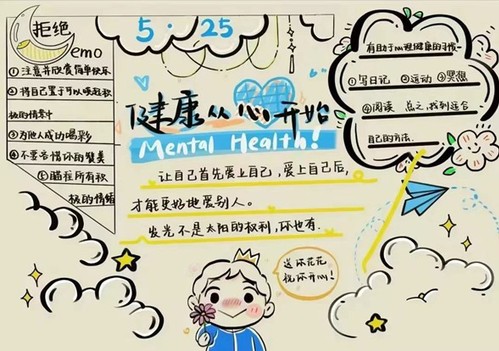 拒绝
emo
①注意并欣赏简单快乐
②将自己置于可以唤起积
极的情景中
③为他人成功喝彩
④不要吝惜你的赞美
⑤瞄准所有积
极的情绪
5·25
健康从心开始
Mental Health!
让自己首先爱上自己,爱上自己后,
才能更好地爱别人。
发光不是太阳的权利,你也有.
送你花花
祝你开心!
有助于心理健康的习惯:
①写日记 ②运动 ③冥想
④阅读 总之,找到适合
自己的方法.